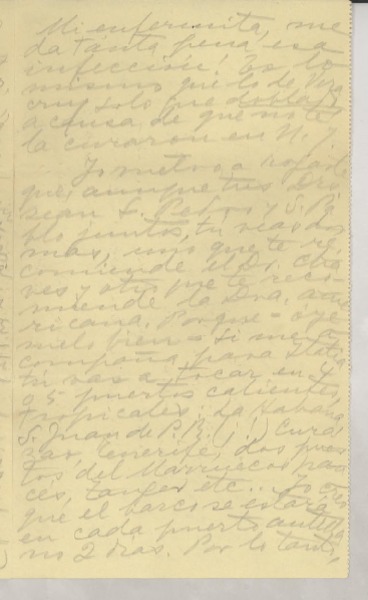 Mi enfermita, me
da tanta pena esa
infección! Es lo
mismo que lo de Vera
cruz, solo que doblada
a causa de que no te
la curaron en N. Y.
Yo me atrevo a rogarte
que, aunque tus Drs.
sean S. Pedro y S. Pa
blo juntos, tu veas dos
mas, uno que te re
comiende el Dr. Cha
ves y otro que te reco
miende la Dra. ame
ricana. Porque - oye
melo bien - si me a
compaña, para Italia
tú vas a tocar en 4
o 5 puertos calientes,
tropicales: La Habana
S. Juan de P. R. (!!) Cura
zao, Tenerife, dos puer
tos del Marruecos fran
cés, Tanger etc.. Yo creo
que el barco se estará
en cada puerto
no 2 dias. Por lo tanto,